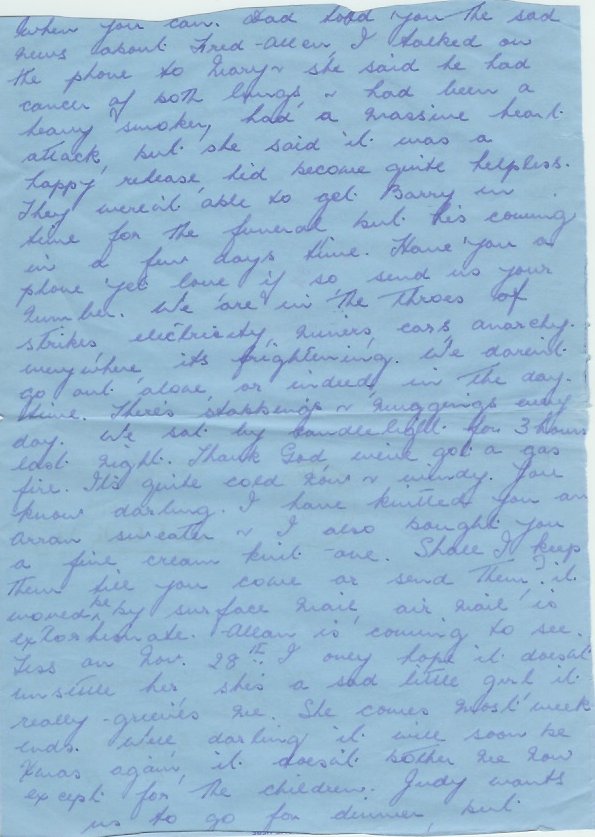 When you can. Dad told you the sad
news about Fred-Allen, I talked on
the phone to Mary ~ she said he had
cancer of both lungs ~ had been a
heavy smoker, had a massive heart
attack, but she said it was a
happy release hid become quite helpless.
They weren't able to get Barry in
time for the funeral but his coming
in a few days time. Have you a
phone yet love if so send us your
number. We are in the throes of
strikes electricity, miners cars anarchy.
everywhere its frightening. We daren't
go out alone, or indeed in the day-
time. There's stabbings ~ muggings every
day. We sat by candlelight for 3 hours
last night. Thank God we've got a gas
fire. It's quite cold now ~ windy. You
know darling. I have knitted you an
arran sweater ~ I also bought you
a fine cream knit-one. Shall I keep
them till you come or send them? it
would be by surface mail, air mail is
extortionate. Allan is coming to see
Tess on Nov. 28th. I only hope it doesn't
unsettle her, she's a sad little girl it
really-grieves me. She comes most week
ends. Well darling it will soon be
Xmas again, it doesn't bother me now
except for the children. Judy wants
us to go for dinner, but